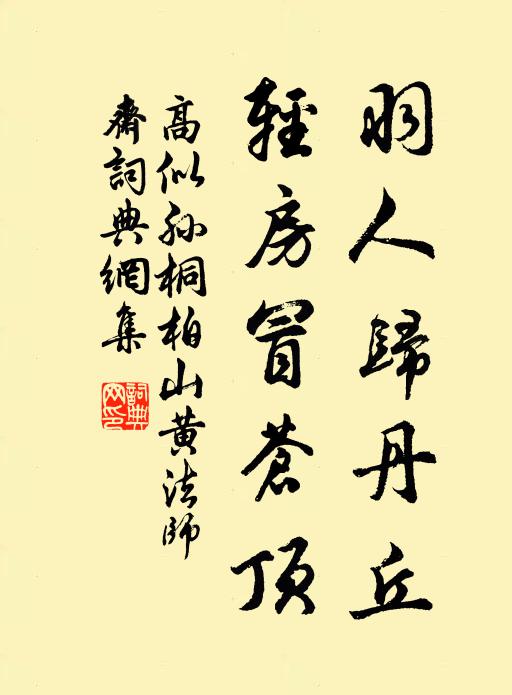 羽人歸丹丘
輕房冒蒼頂
高似孙桐柏山黄法師
齋詞典網集
詞典网印